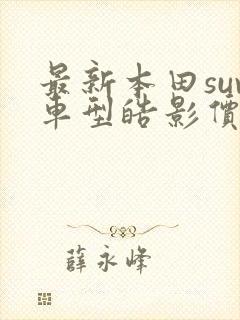 最新本田suv
車型皓影價
薛永峰